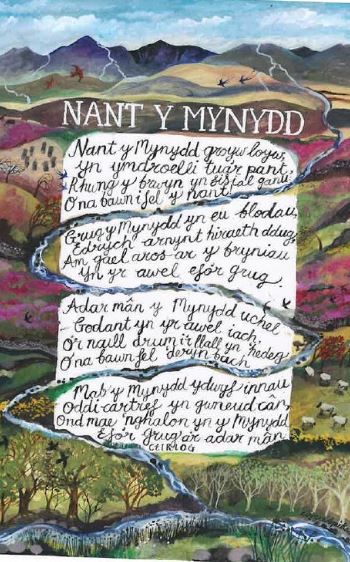 NANT Y MYNYDD
Nant y Mynydd groyw loyw,
yn ymdroelli tua'r pant,
Rhwng y brwyn yn sisial ganu;
O na bawn i fel y nant!
Grug y Mynydd yn eu blodau,
Edrych arnynt hiraeth ddug
Am gael aros ar y bryniau
Yn yr awel efo'r grug.
Adar mân y Mynydd uchel
Godant yn yr awel iach,
O'r naill drum i'r llall yn hedeg
O na bawn fel deryn bach
Mab y Mynydd ydwyf innau
Oddi cartref yn gwneud cân,
Ond mae 'nghalon yn y Mynydd
Efo'r grug a'r adar mân.
CEIRIOG